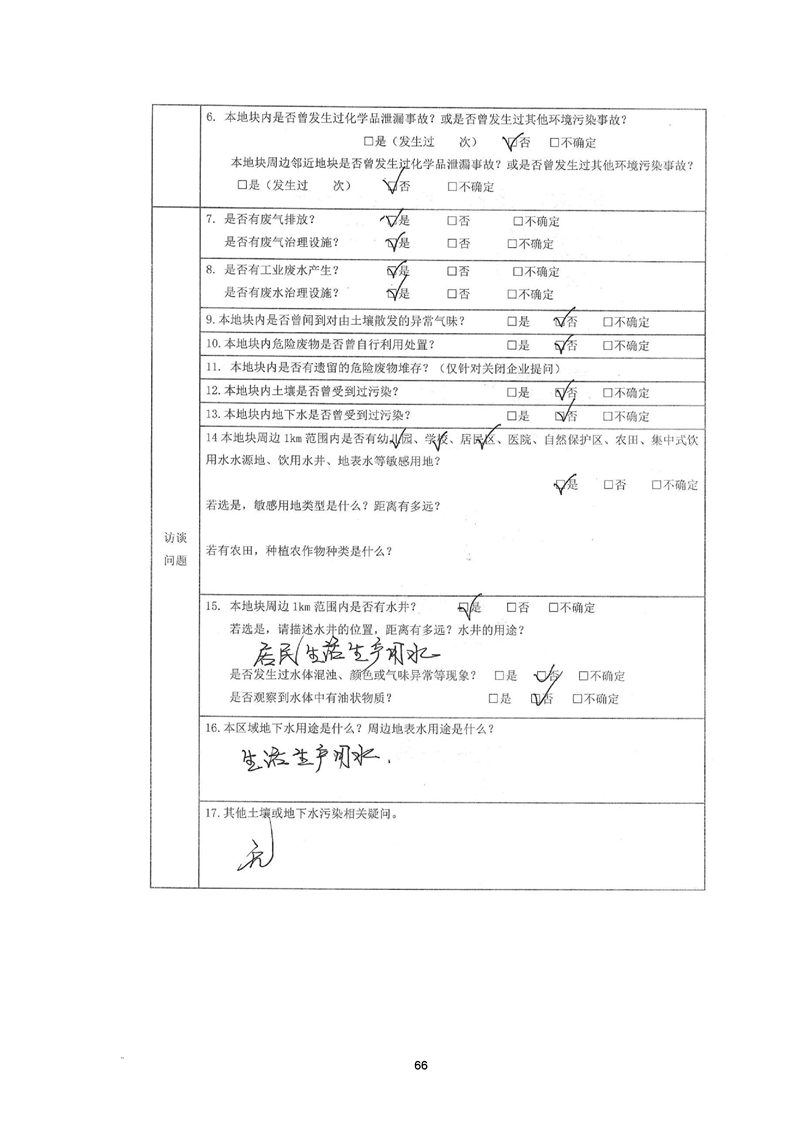 6. 本地块内是否曾发生过化学品泄漏事故？或是否曾发生过其他环境污染事故？
□是（发生过 次） ☑否 □不确定
本地块周边邻近地块是否曾发生过化学品泄漏事故？或是否曾发生过其他环境污染事故？
□是（发生过 次） ☑否 □不确定
访谈
问题
7. 是否有废气排放？ ☑是 □否 □不确定
是否有废气治理设施？ ☑是 □否 □不确定
8. 是否有工业废水产生？ ☑是 □否 □不确定
是否有废水治理设施？ ☑是 □否 □不确定
9.本地块内是否曾闻到对由土壤散发的异常气味？ □是 ☑否 □不确定
10.本地块内危险废物是否曾自行利用处置？ □是 ☑否 □不确定
11. 本地块内是否有遗留的危险废物堆存？（仅针对关闭企业提问）
12.本地块内土壤是否曾受到过污染？ □是 ☑否 □不确定
13.本地块内地下水是否曾受到过污染？ □是 ☑否 □不确定
14 本地块周边 1km 范围内是否有幼儿园、学校、居民区、医院、自然保护区、农田、集中式饮
用水水源地、饮用水井、地表水等敏感用地？
☑是 □否 □不确定
若选是，敏感用地类型是什么？距离有多远？
若有农田，种植农作物种类是什么？
15. 本地块周边 1km 范围内是否有水井？ ☑是 □否 □不确定
若选是，请描述水井的位置，距离有多远？水井的用途？
居民生活生产用水
是否发生过水体混浊、颜色或气味异常等现象？ □是 ☑否 □不确定
是否观察到水体中有油状物质？ □是 ☑否 □不确定
16.本区域地下水用途是什么？周边地表水用途是什么？
生活生产用水.
17.其他土壤或地下水污染相关疑问。
无
66